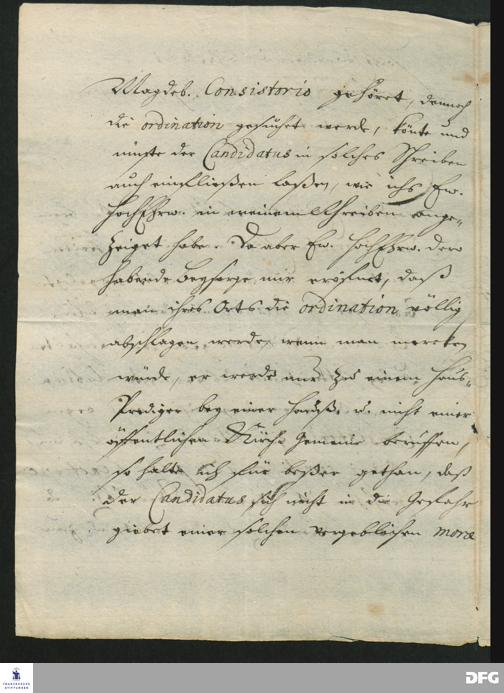 Magdeb. Consistorio gehöret, dennoch
die ordination gesuchet werde, könte und
müste der Candidatus in solches Schreiben
auch einfließen laßen, wie ichs Ew.
HochEhrw. in meinem Schreiben ange-
zeiget habe. Da aber Ew. HochEhrw. dero
habende Beysorge mir eröfnet, daß
man ihres Orts die ordination völlig
abschlagen werde, wenn man mercken
würde, er werde nur zu einem Haus-
Prediger bey einer Herrsch. u. nicht einer
öffentlichen Kirch Gemeine beruffen,
so halte ich für beßer gethan, daß
der Candidatus sich nicht in die Gefahr
giebet einer solchen vergeblichen moræ
FRANCKESCHE
STIFTUNGEN
DFG